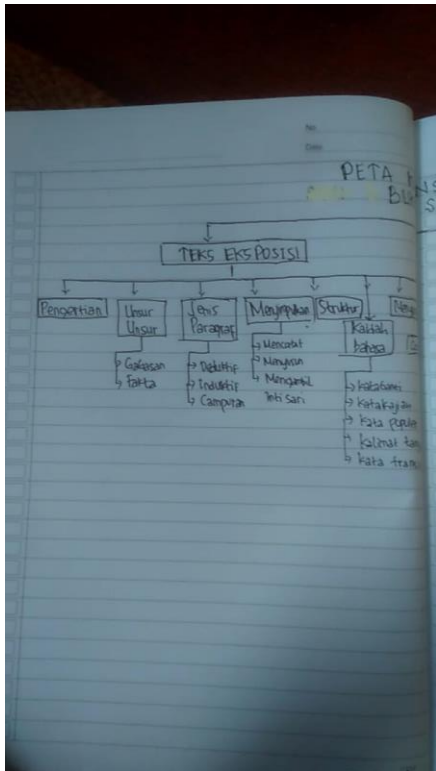 No
Date
PETA
BL
TEKS EKSPOSISI
Pengertian
Unsur
Unsur
Gagasan
Fakta
Jenis
Paragraf
Deduktif
Induktif
Campuran
Menyimpulkan
Mencatat
Menyusun
Mengambil
Inti sari
Struktur
Kaidah
bahasa
kata ganti
kata kajian
kata populer
kalimat
kata